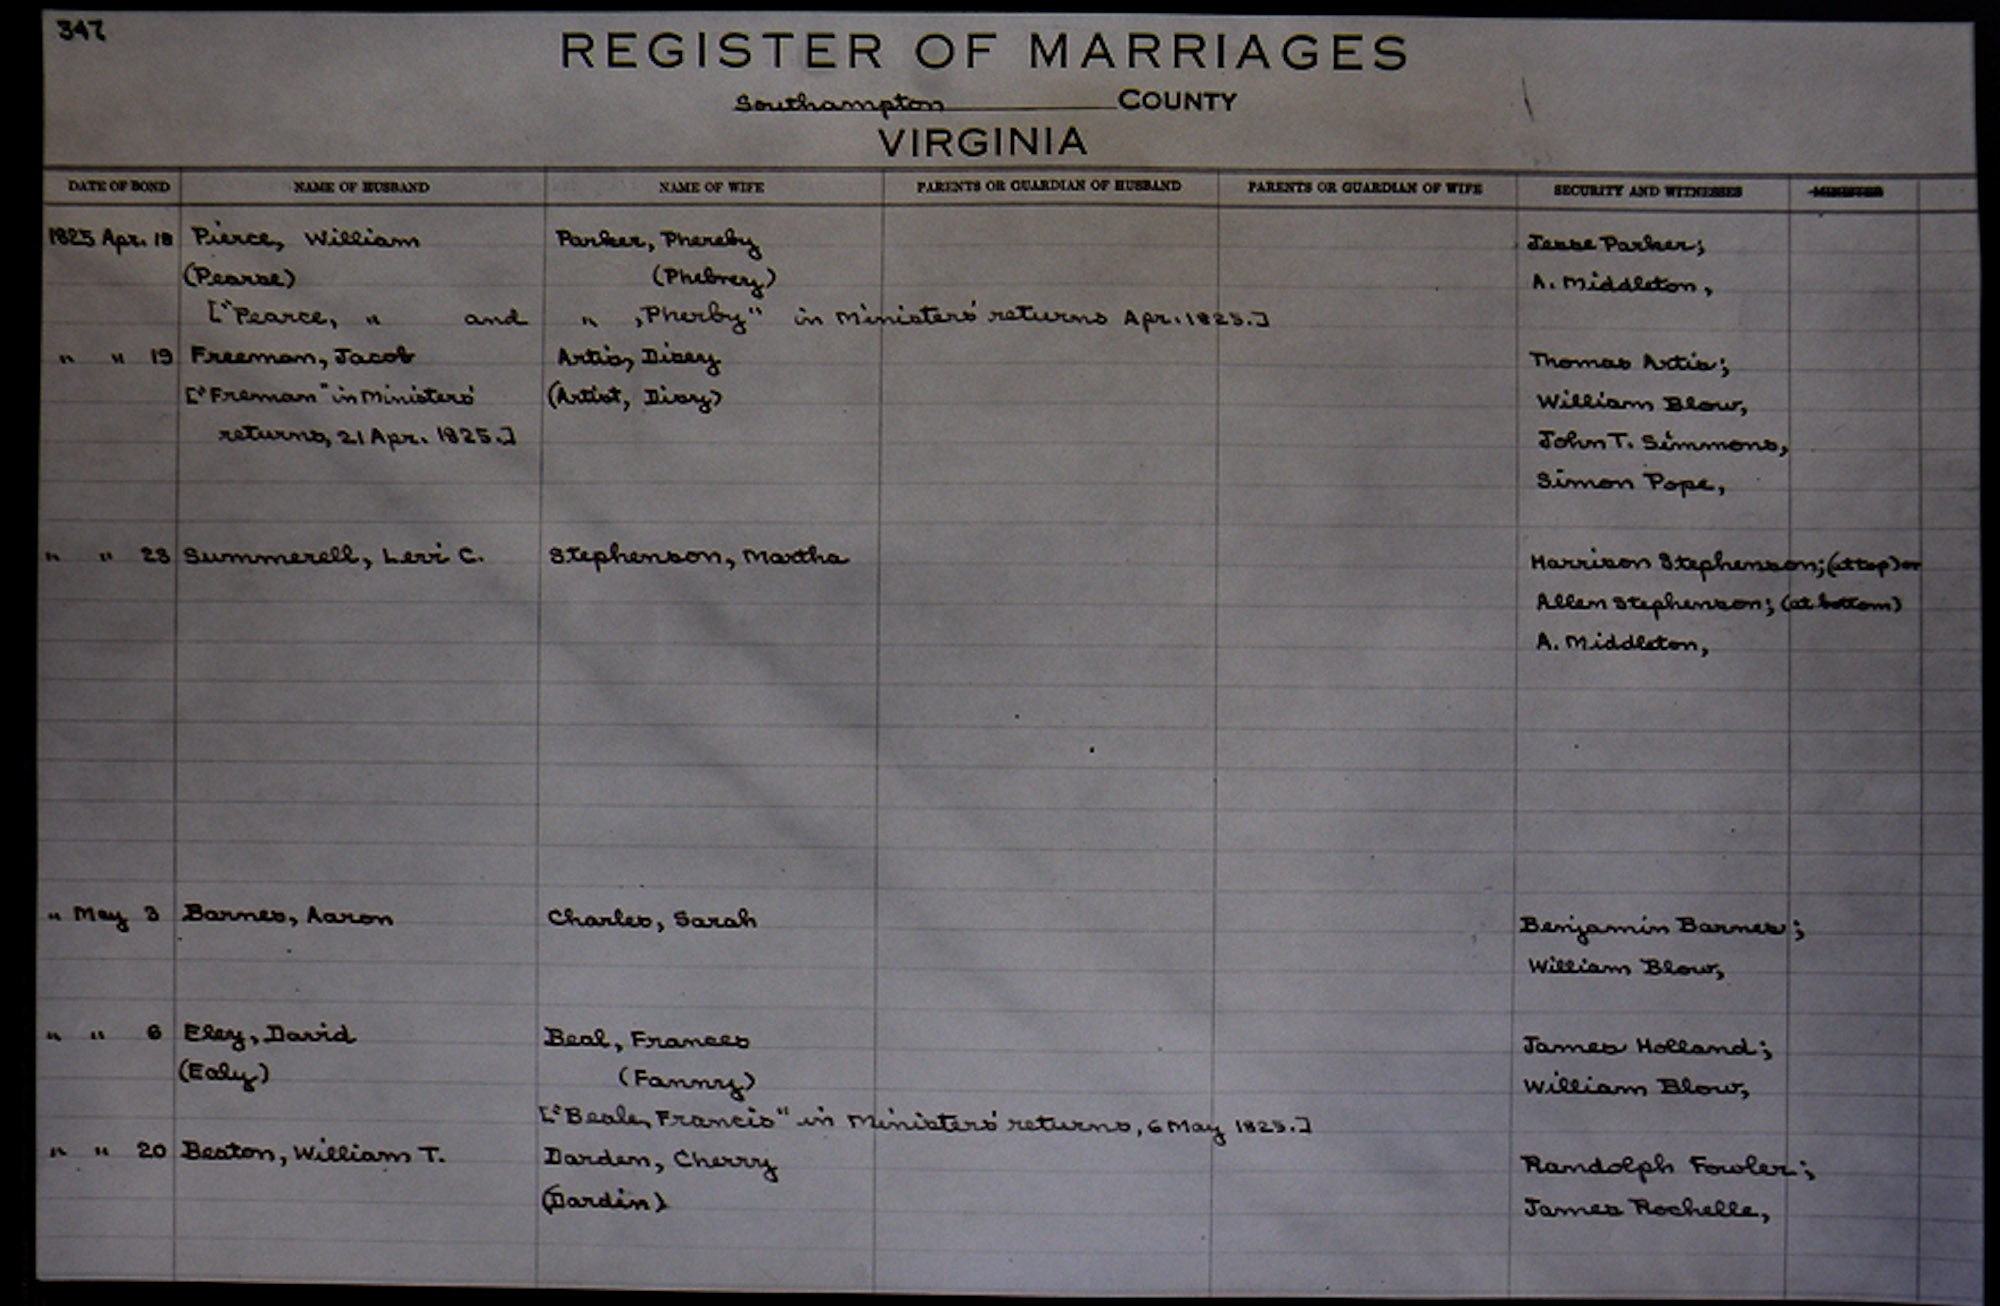 347
REGISTER OF MARRIAGES
Southampton COUNTY
VIRGINIA
DATE OF BOND NAME OF HUSBAND NAME OF WIFE PARENTS OR GUARDIAN OF HUSBAND PARENTS OR GUARDIAN OF WIFE SECURITY AND WITNESSES MINISTER
1825 Apr. 18 Pierce, William Parker, Phereby Jesse Parker;
(Pearse) (Phebrey) A. Middleton,
["Pearce, " and " Pherby" in Ministers' returns Apr. 1825.]
" " 19 Freeman, Jacob Artis, Dicey Thomas Artis;
["Freman" in Ministers' (Artist, Disey) William Blow,
returns, 21 Apr. 1825.] John T. Simmons,
Simon Pope,
" " 23 Summerell, Levi C. Stephenson, Martha Harrison Stephenson; (at top) or
Allen Stephenson; (at bottom)
A. Middleton,
" May 3 Barnes, Aaron Charles, Sarah Benjamin Barnes;
William Blow,
" " 6 Eley, David Beal, Frances James Holland;
(Ealy) (Fanny) William Blow,
["Beale, Francis" in Ministers' returns, 6 May 1825.]
" " 20 Beaton, William T. Darden, Cherry Randolph Fowler;
(Dardin) James Rochelle,